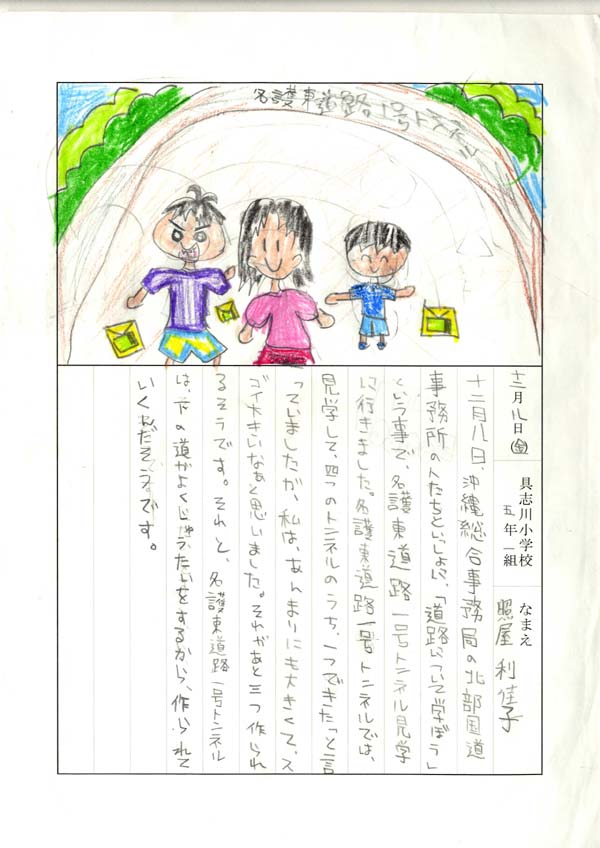 名護東道路1号トンネル
十二月八日㊎ 具志川小学校 五年一組 なまえ 照屋利佳子
十二月八日、沖縄総合事務局の北部国道
事務所の人たちといっしょに、「道路について学ぼう」
という事で、名護東道路一号トンネル見学
に行きました。名護東道路一号トンネルでは、
見学して、四つのトンネルのうち、一つできた「と言
っていましたが、私は、あんまりにも大きくて、ス
ゴイ大きいなぁと思いました。それがあと三つ作られ
るそうです。それと、名護東道路一号トンネル
は、下の道がよくじゅうたいをするから、作られて
いくんだそうです。